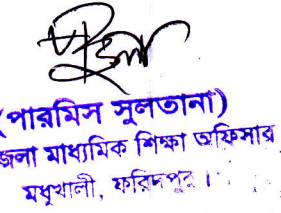 (পারমিস সুলতানা)
জেলা মাধ্যমিক শিক্ষা অফিসার
মধুখালী, ফরিদপুর।